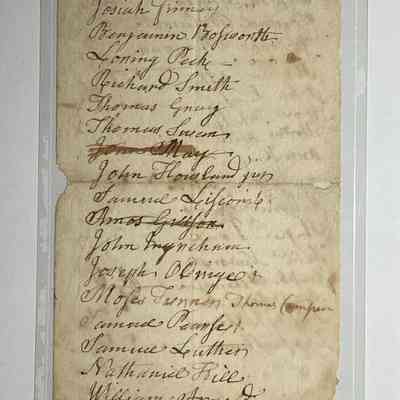 Josiah Finney
Benjamin Bosworth
Loring Peck
Richard Smith
Thomas Gray
Thomas Swan
Jona May
John Howland jun
Samuel Liscomb
Amos
John
Joseph
Moses Thomas
Samuel Pearse
Samuel Luther
Nathaniel Hill
William